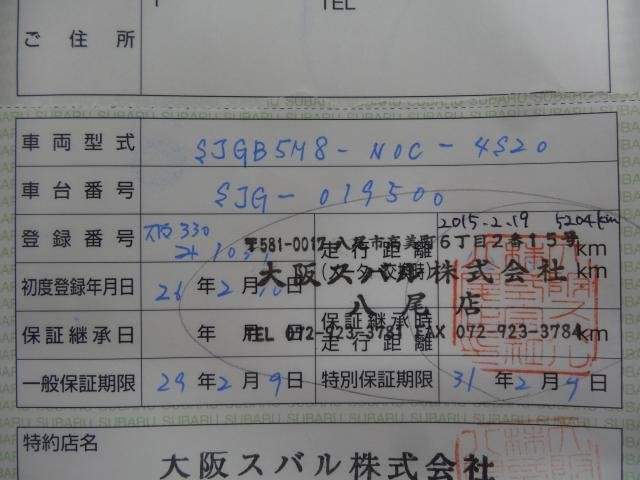 TEL
ご住所
SUBARU SUBARU SUBARU SUBARU SUBARU SUBARU
車両型式 SJGB5M8-NOC-4S20
車台番号 SJG-019500
登録番号 大阪330 2015-2.19 5204km
〒581-0017 八尾市高美町6丁目2番15号
走行距離 km
大阪スバル株式会社 km
初度登録年月日 26年2月10日
八尾店
保証継承日 年 月 日 保証継承時走行距離 km
TEL 072-923-3781 FAX 072-923-3784
一般保証期限 29年2月9日 特別保証期限 31年2月9日
SUBARU SUBARU SUBARU SUBARU SUBARU SUBARU
特約店名
大阪スバル株式会社